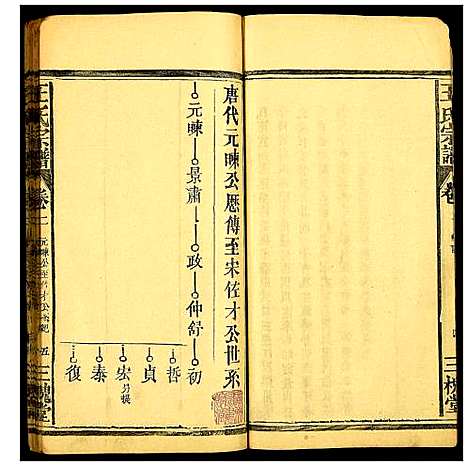 王氏宗譜
唐代元暕公歷傳至宋佐才公世系
元暕
景肅
政
仲舒
初
哲
貞
宏
泰
復
王氏宗譜
卷二
五
三槐堂
三槐堂